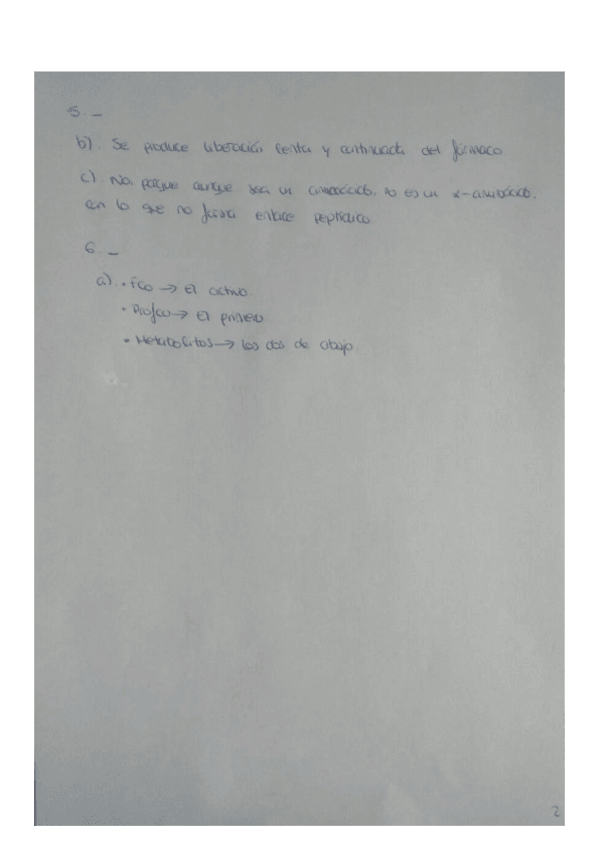 5._
b). Se produce liberación lenta y continuada del fármaco
c). No, porque aunque sea un aminoácido, no es un α-aminoácido.
en lo que no forma enlace peptídico
6._
a). • Fco → El activo.
• Profco → El primero
• Metabolitos → los dos de abajo.
2